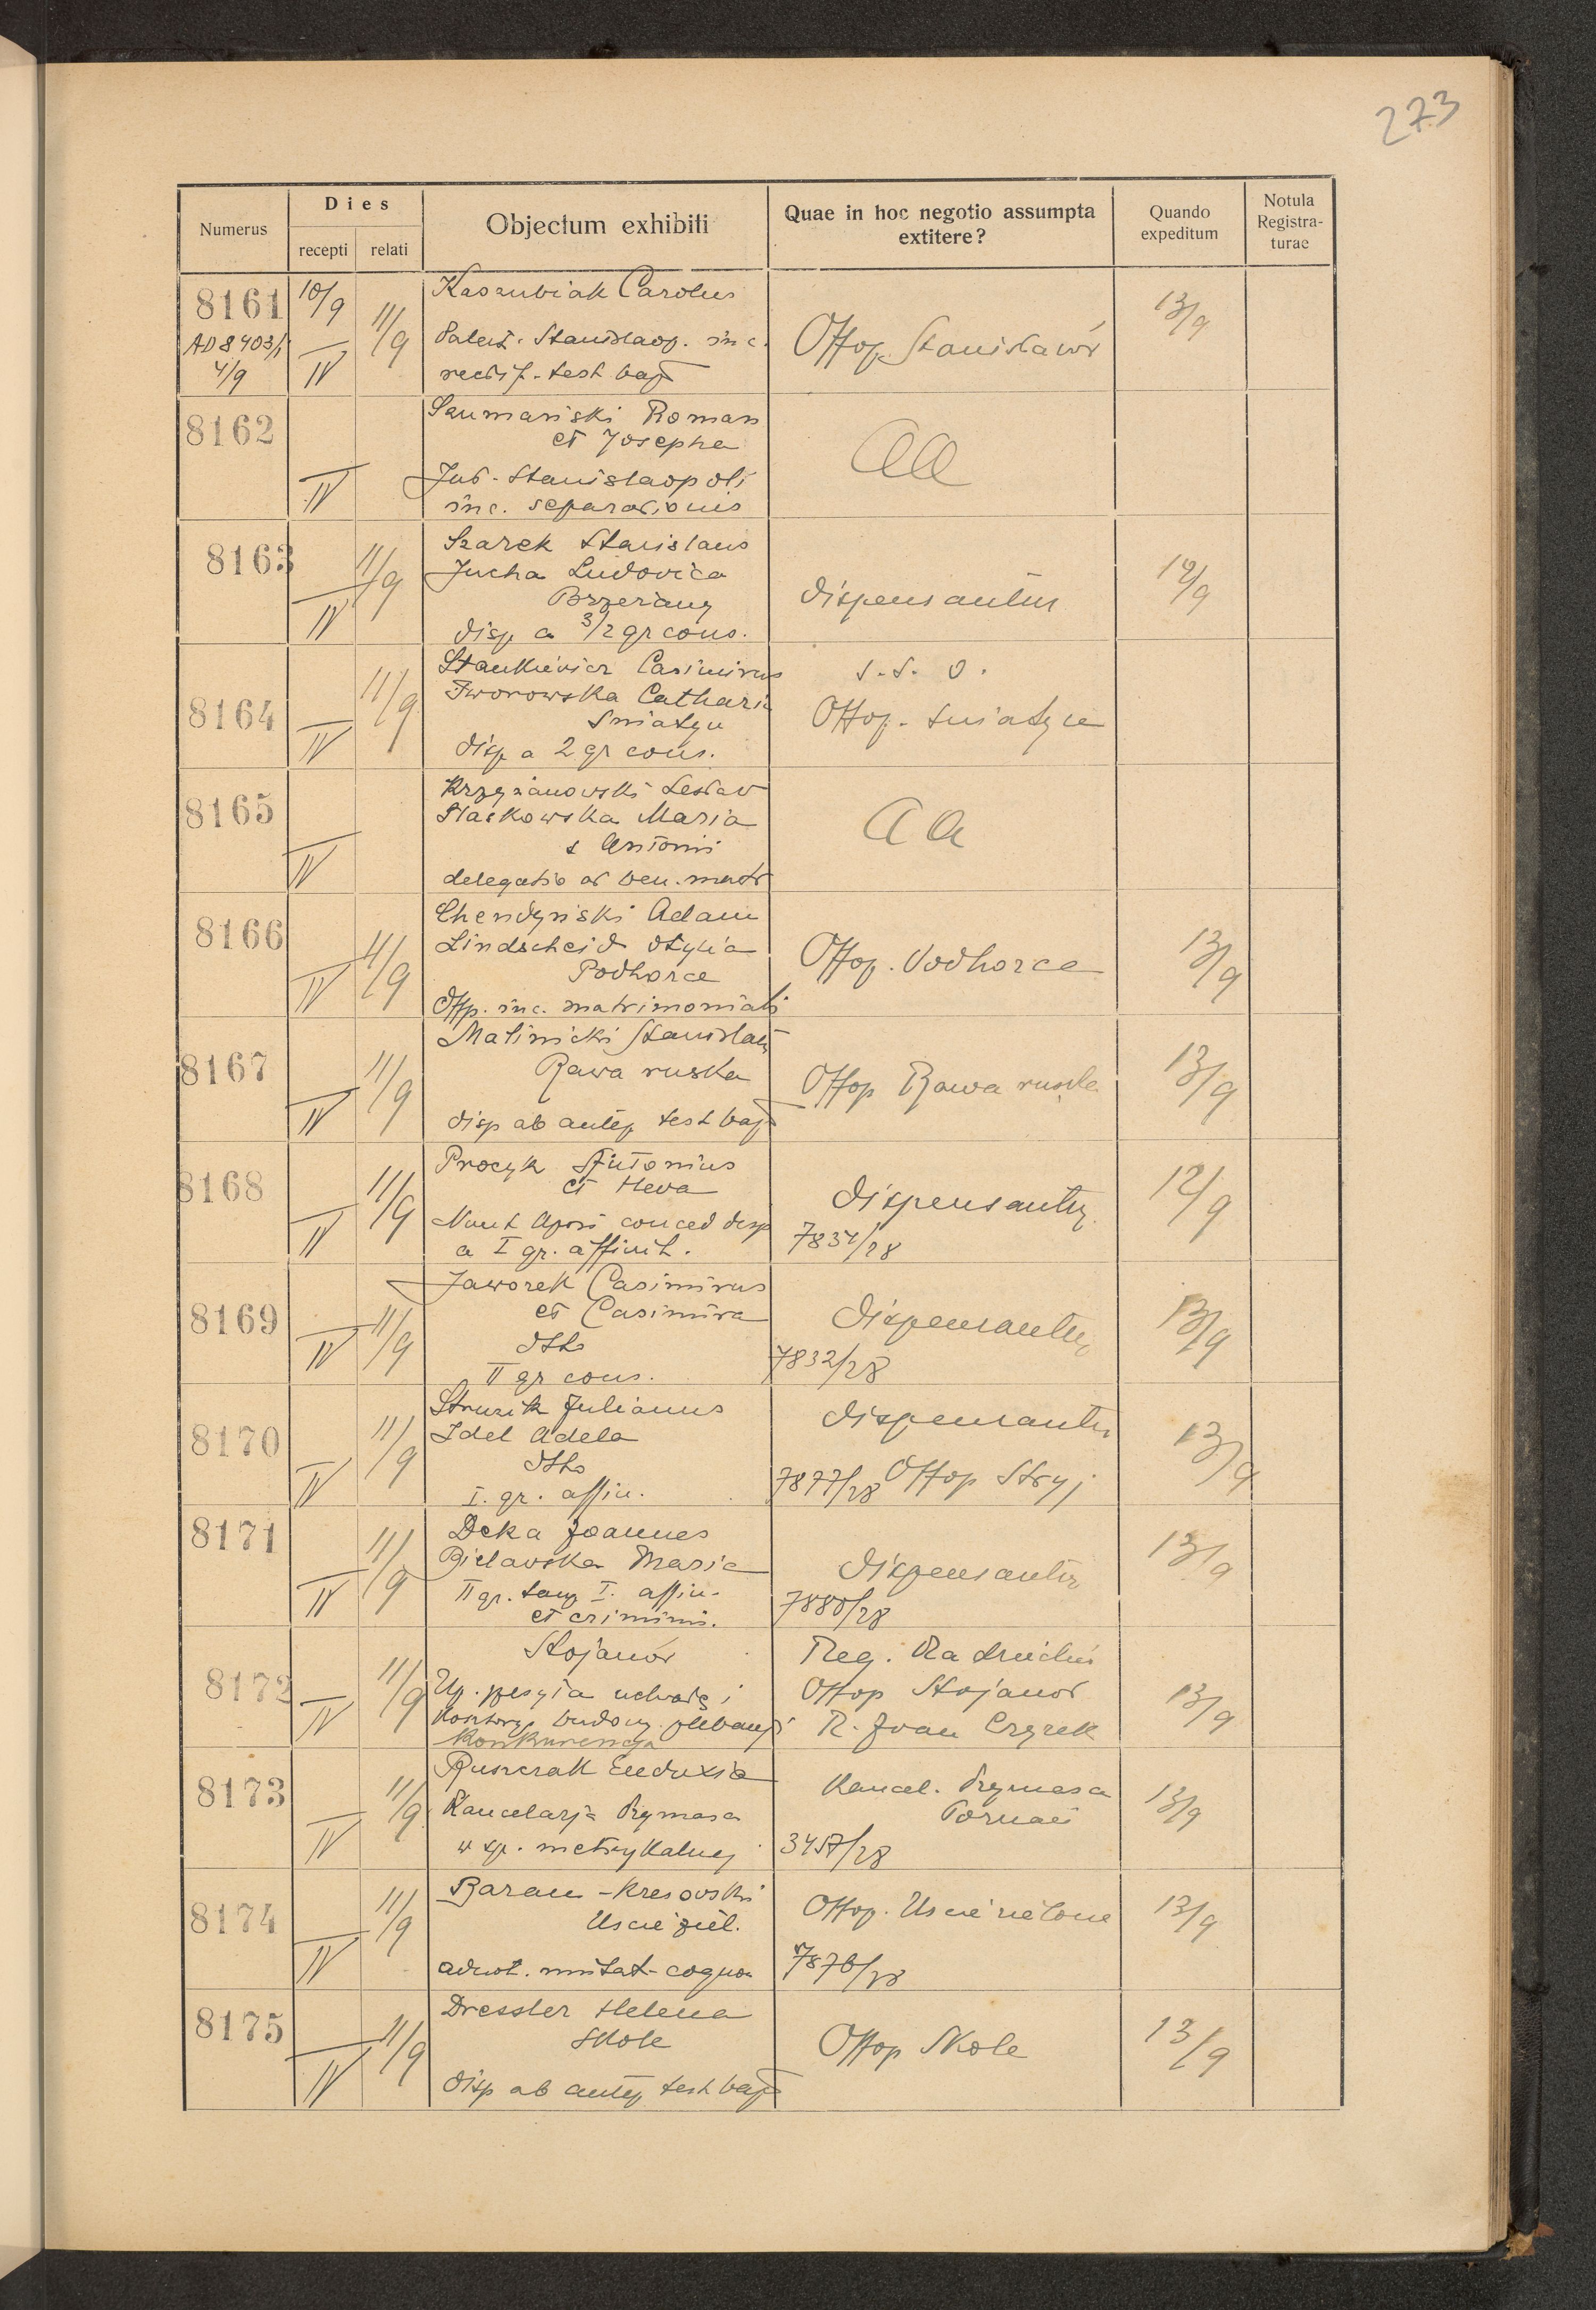 273
Numerus
Dies
recepti
relati
Objectum exhibiti
Quae in hoc negotio assumpta
extitere?
Quando
expeditum
Notula
Registra-
turae
8161
AD 8403/1
4/9
10/9
IV
11/9
Kaszubiak Carolus
Palest. Stanislaop. in c.
rectif. test bapt
Offop. Stanisławów
13/9
8162
IV
Szumański Roman
et Josepha
Jud. Stanislaopoli
inc. separationis
aa
8163
IV
11/9
Szarek Stanislaus
Jucha Ludovica
Brzeżany
disp a 3/2 gr cons.
dispensantur
12/9
8164
IV
11/9
Stankiewicz Casimirus
Jworowska Cathari
Sniatyn
disp a 2 gr cons.
s. s. o.
Offop. Sniatyn
8165
IV
Krzyżanowski Lesław
Stackowska Maria
s Antonii
delegatio ad ben. matr
aa
8166
IV
11/9
Chendyński Adam
Lindscheid Otylia
Podhorce
Offp. inc. matrimoniali
Offop. Podhorce
13/9
8167
IV
11/9
Malinicki Stanislaus
Rawa ruska
disp ab antep test bapt
Offop Rawa ruska
13/9
8168
IV
11/9
Procyk Antonius
et Heva
Nunt Apos conced disp
a I gr. affinit.
dispensantur
7831/28
12/9
8169
IV
11/9
Jaworek Casimirus
et Casimira
dtto
II gr cons.
dispensantur
7832/28
13/9
8170
IV
11/9
Struzik Julianus
Idel Adela
dtto
I. gr. affin.
dispensantur
7877/28 Offop Stryj
13/9
8171
IV
11/9
Deka Joannes
Bielawska Maria
II gr. tang I. affin.
et criminis.
dispensantur
7880/28
13/9
8172
IV
11/9
Stojanów
Up. przesyła uchwałę i
kosztorys budowy plebanji
Konkurencja
Reg. Radziechów
Offop Stojanów
R. Joan Czyrek
13/9
8173
IV
11/9
Ruszczak Eudoxia
Kancelarja Prymasa
w sp. metrykalnej
Kancel. Prymasa
Poznań
3457/28
13/9
8174
IV
11/9
Baran-Kresowski
Uscie ziel.
adnot. mutat. cognom
Offop. Uscie zielone
7876/28
13/9
8175
IV
11/9
Dressler Helena
Skole
disp ab antep test bapt
Offop Skole
13/9